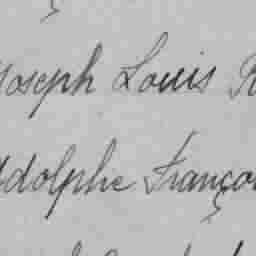 Joseph Louis
Adolphe François